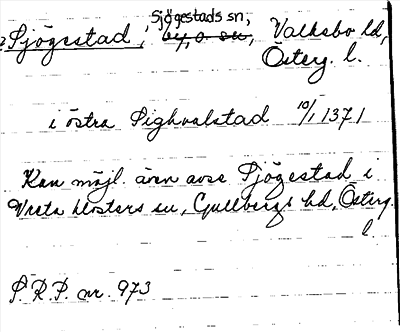 Sjögestads sn,
? Sjögestad, by, o. sn, Valkebo hd,
Österg. l.
i östra Sighvalstad 10/1 1371
Kan möjl. även avse Sjögestad i
Vreta klosters sn, Gullbergs hd, Österg.
l.
S. R. P. nr. 973